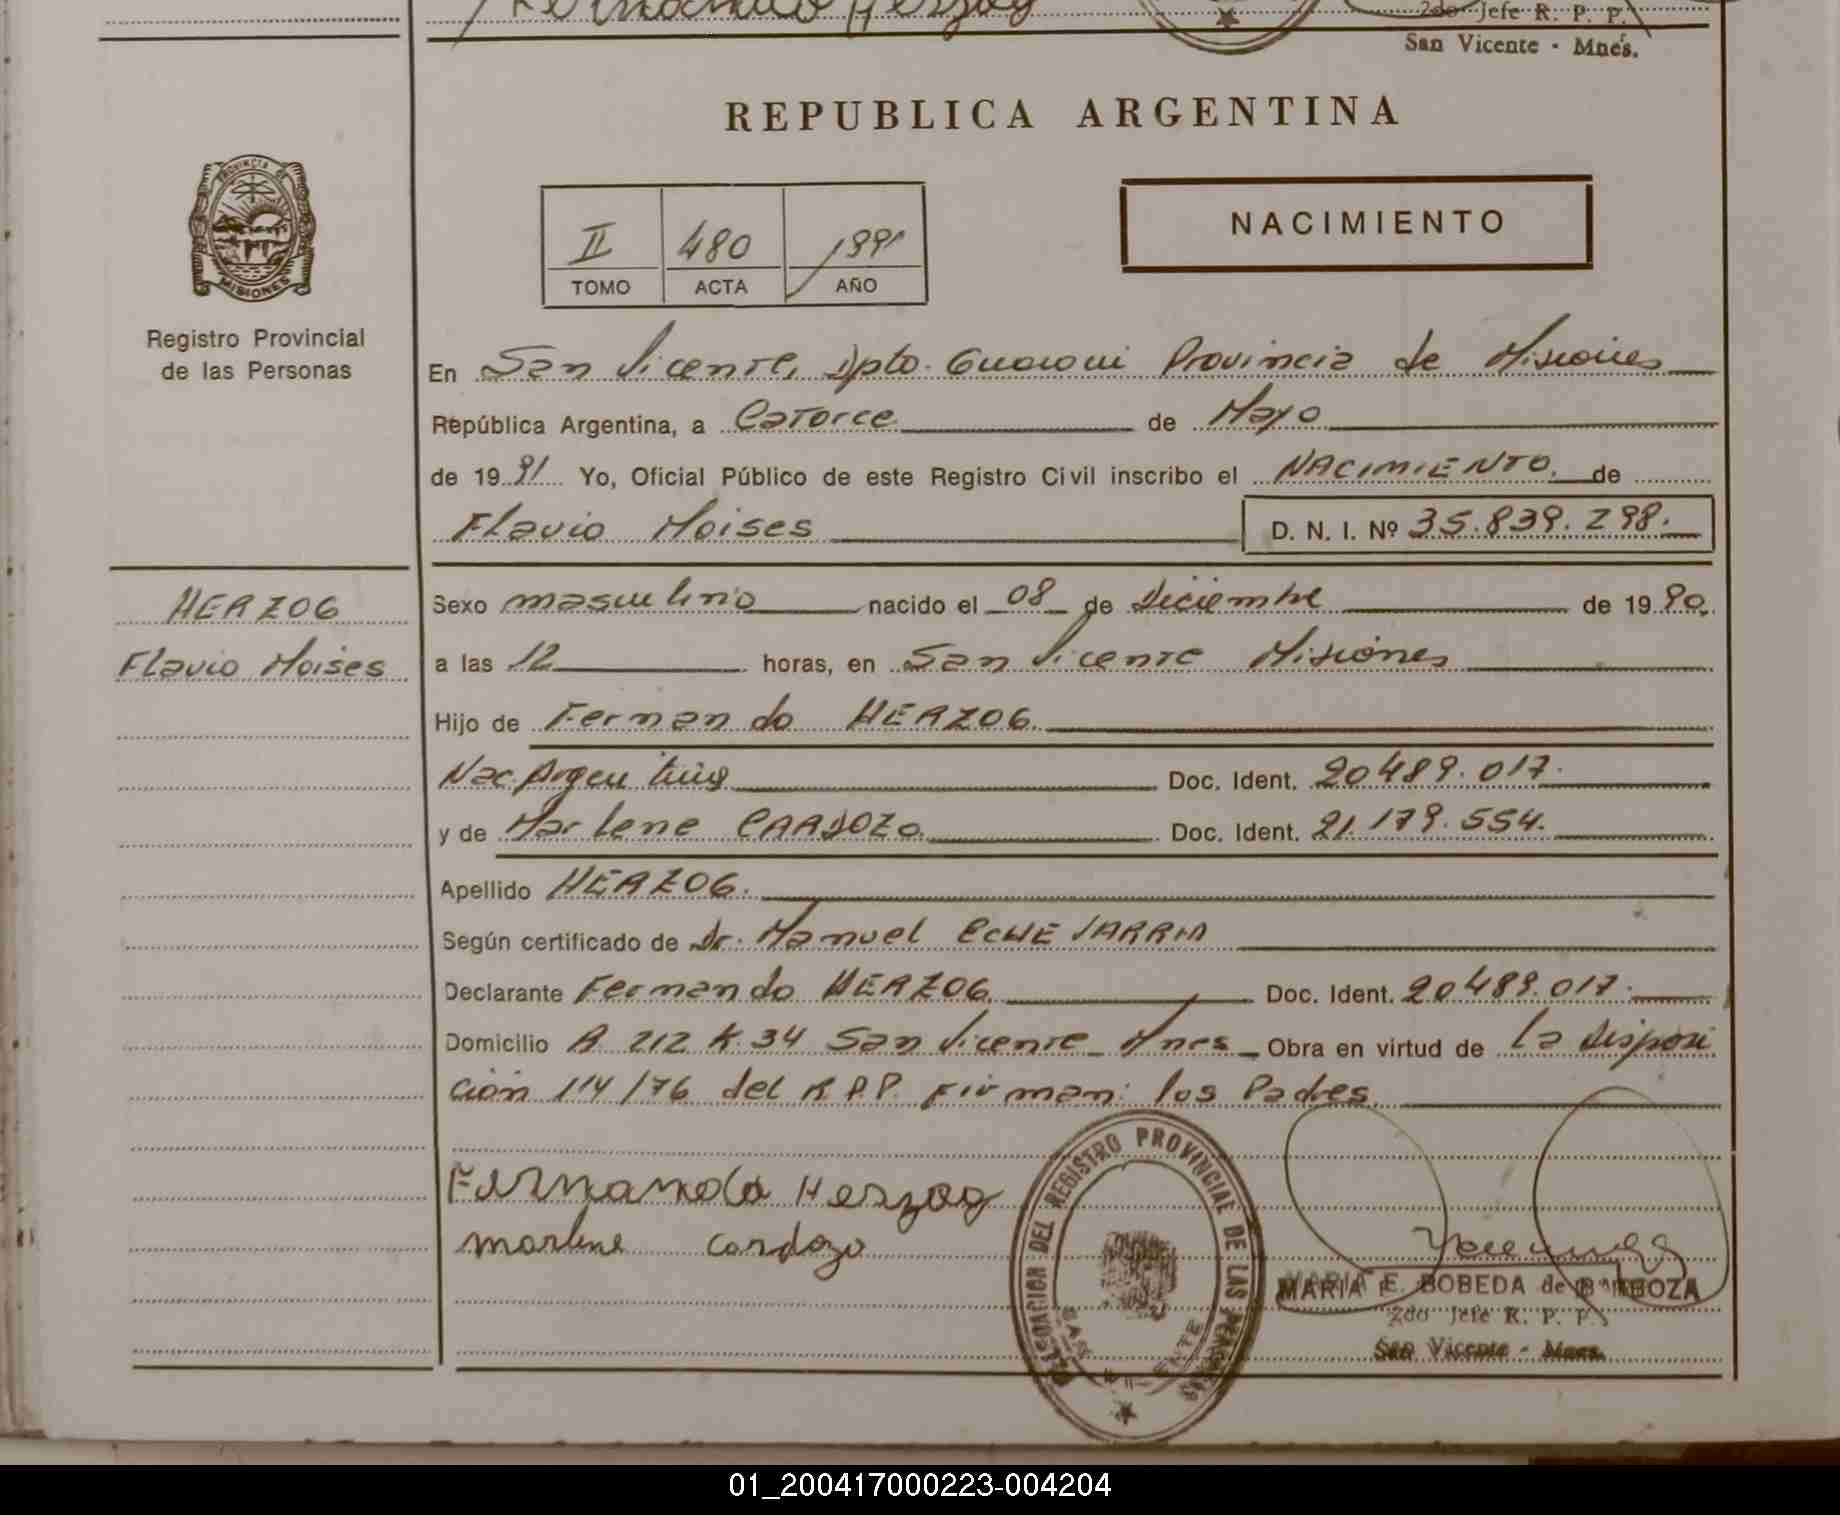 Fernando Herzog
2do Jefe R. P. P.
San Vicente - Mnes.
REPUBLICA ARGENTINA
PROVINCIA DE
MISIONES
II 480 1991
TOMO ACTA AÑO
NACIMIENTO
Registro Provincial
de las Personas
En San Vicente, Dpto. Guarani Provincia de Misiones
República Argentina, a Catorce de Mayo
de 1991 Yo, Oficial Público de este Registro Civil inscribo el NACIMIENTO. de
Flavio Moises D. N. I. Nº 35.839.298.
HERZOG
Flavio Moises
Sexo masculino nacido el 08 de Diciembre de 1990.
a las 12 horas, en San Vicente Misiones
Hijo de Fernando HERZOG.
Nac. Argentina Doc. Ident. 20489.017.
y de Marlene CARDOZO. Doc. Ident. 21.179.554.
Apellido HERZOG.
Según certificado de Dr. Manuel ECHEVARRIA
Declarante Fernando HERZOG. Doc. Ident. 20489.017.
Domicilio R 212 K.34 San Vicente Mnes Obra en virtud de la Disposi
ción 114/76 del R.P.P. Firman: los Padres.
Fernando Herzog
marlene cardozo
DELEGACION DEL REGISTRO PROVINCIAL DE LAS PERSONAS
SAN VICENTE
MARIA E. BOBEDA de BARBOZA
2do Jefe R. P. P.
San Vicente - Mnes.
01_200417000223-004204